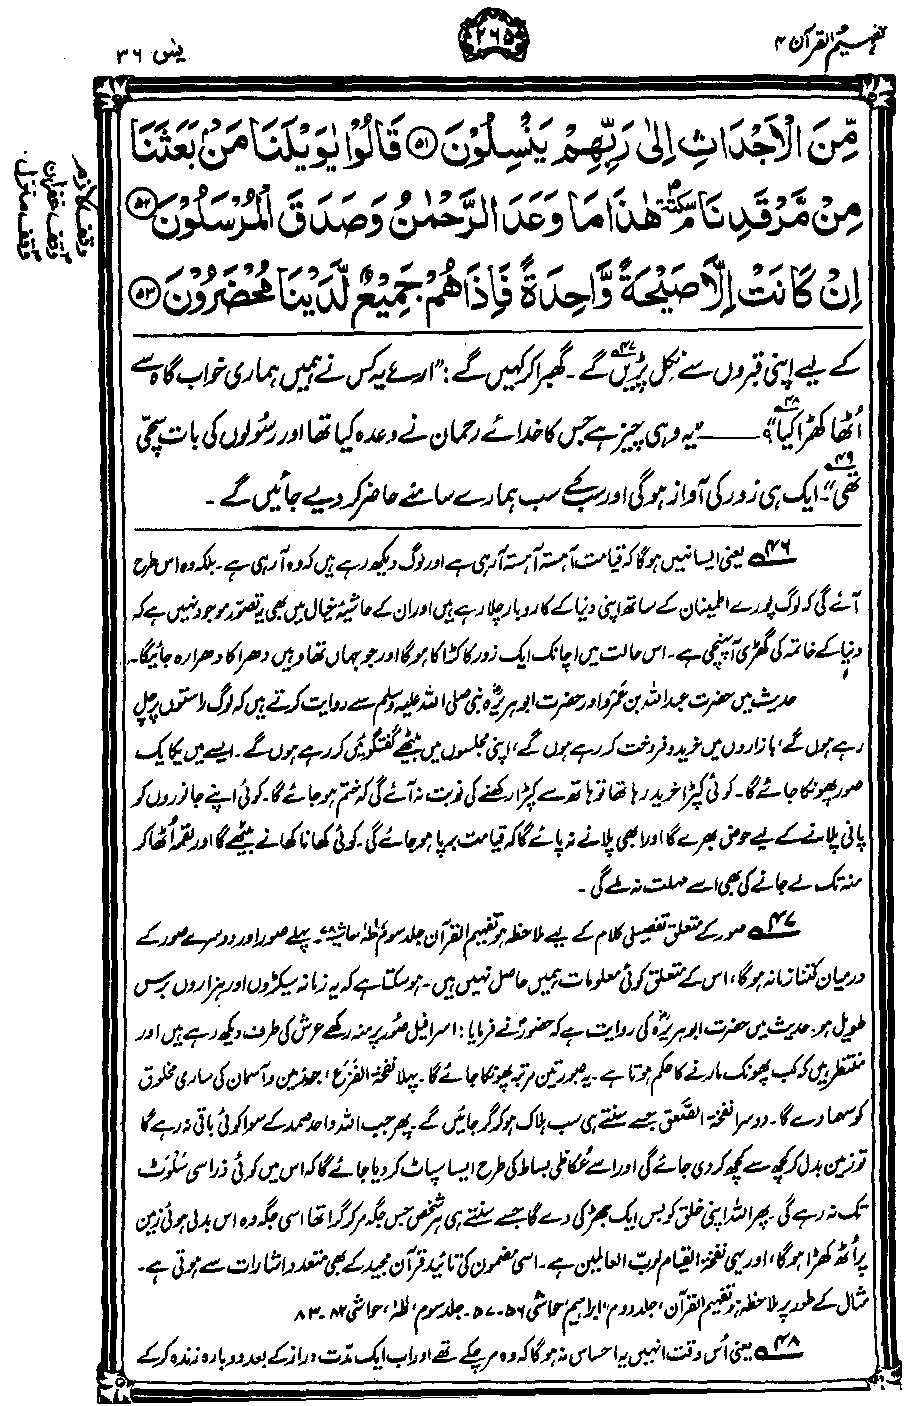 تفہیم القرآن ۴
۲۶۵
یٰس ۳۶
مِّنَ الْاَجْدَاثِ اِلٰى رَبِّهِمْ يَنْسِلُوْنَ ﴿۵۱﴾ قَالُوْا يٰوَيْلَنَا مَنْۢ بَعَثَنَا
مِنْ مَّرْقَدِنَا ٚۘ سکتۃ هٰذَا مَا وَعَدَ الرَّحْمٰنُ وَصَدَقَ الْمُرْسَلُوْنَ ﴿۵۲﴾
اِنْ كَانَتْ اِلَّا صَيْحَةً وَّاحِدَةً فَاِذَا هُمْ جَمِيْعٌ لَّدَيْنَا مُحْضَرُوْنَ ﴿۵۳﴾
وقف لازم
وقف غفران
وقف منزل
کے لیے اپنی قبروں سے نکل پڑیں گے۴۷۔ گھبرا کر کہیں گے: "ارے یہ کس نے ہمیں ہماری خواب گاہ سے
اُٹھا کھڑا کیا۴۸"؟ ــــــ "یہ وہی چیز ہے جس کا خدائے رحمان نے وعدہ کیا تھا اور رسولوں کی بات سچّی
تھی۴۹"۔ ایک ہی زور کی آواز ہوگی اور سب کے سب ہمارے سامنے حاضر کر دیے جائیں گے۔
۴۶ یعنی ایسا نہیں ہوگا کہ قیامت آہستہ آہستہ آ رہی ہے اور لوگ دیکھ رہے ہیں کہ وہ آ رہی ہے۔ بلکہ وہ اس طرح
آئے گی کہ لوگ پورے اطمینان کے ساتھ اپنی دنیا کے کاروبار چلا رہے ہیں اور ان کے حاشیۂ خیال میں بھی یہ تصوّر موجود نہیں ہے کہ
دنیا کے خاتمہ کی گھڑی آ پہنچی ہے۔ اس حالت میں اچانک ایک زور کا کڑاکا ہوگا اور جو جہاں تھا وہیں دھرا کا دھرا رہ جائیگا۔
حدیث میں حضرت عبداللہ بن عمرؓو اور حضرت ابوہریرہؓ نبی صلی اللہ علیہ وسلم سے روایت کرتے ہیں کہ لوگ راستوں پر چل
رہے ہوں گے، بازاروں میں خرید و فروخت کر رہے ہوں گے، اپنی مجلسوں میں بیٹھے گفتگوئیں کر رہے ہوں گے۔ ایسے میں یکایک
صور پھونکا جائے گا۔ کوئی کپڑا خرید رہا تھا تو ہاتھ سے کپڑا رکھنے کی نوبت نہ آئے گی کہ ختم ہو جائے گا۔ کوئی اپنے جانوروں کو
پانی پلانے کے لیے حوض بھرے گا اور ابھی پلانے نہ پائے گا کہ قیامت برپا ہو جائے گی۔ کوئی کھانا کھانے بیٹھے گا اور لقمہ اُٹھا کر
منہ تک لے جانے کی بھی اسے مہلت نہ ملے گی۔
۴۷ صور کے متعلق تفصیلی کلام کے لیے ملاحظہ ہو تفہیم القرآن جلد سوم، طٰہٰ حاشیہ ۷۸۔ پہلے صور اور دوسرے صور کے
درمیان کتنا زمانہ ہوگا، اس کے متعلق کوئی معلومات ہمیں حاصل نہیں ہیں۔ ہو سکتا ہے کہ یہ زمانہ سیکڑوں اور ہزاروں برس
طویل ہو۔ حدیث میں حضرت ابوہریرہؓ کی روایت ہے کہ حضورؐ نے فرمایا: اسرافیل صُور پر منہ رکھے عرش کی طرف دیکھ رہے ہیں اور
منتظر ہیں کہ کب پھونک مارنے کا حکم ہوتا ہے۔ یہ صور تین مرتبہ پھونکا جائے گا۔ پہلا نفخۃ الفَزَع، جو زمین و آسمان کی ساری مخلوق
کو سہما دے گا۔ دوسرا نفخۃ الصَّعق جسے سنتے ہی سب ہلاک ہو کر گر جائیں گے۔ پھر جب اللہ واحد صمد کے سوا کوئی باقی نہ رہے گا
تو زمین بدل کر کچھ سے کچھ کر دی جائے گی اور اسے عُکاظی بساط کی طرح ایسا سپاٹ کر دیا جائے گا کہ اس میں کوئی ذرا سی سَلوَٹ
تک نہ رہے گی۔ پھر اللہ اپنی خلق کو بس ایک جھڑکی دے گا جسے سنتے ہی ہر شخص جس جگہ مر کر گرا تھا اسی جگہ وہ اس بدلی ہوئی زمین
پر اُٹھ کھڑا ہوگا، اور یہی نفخۃ القیام لرب العالمین ہے۔ اسی مضمون کی تائید قرآن مجید کے بھی متعدد اشارات سے ہوتی ہے۔
مثال کے طور پر ملاحظہ ہو تفہیم القرآن، جلد دوم، ابراہیم، حواشی ۵۶-۵۷۔ جلد سوم، طٰہٰ، حواشی ۸۲-۸۳۔
۴۸ یعنی اُس وقت انہیں یہ احساس نہ ہوگا کہ وہ مر چکے تھے اور اب ایک مدّت دراز کے بعد دوبارہ زندہ کر کے